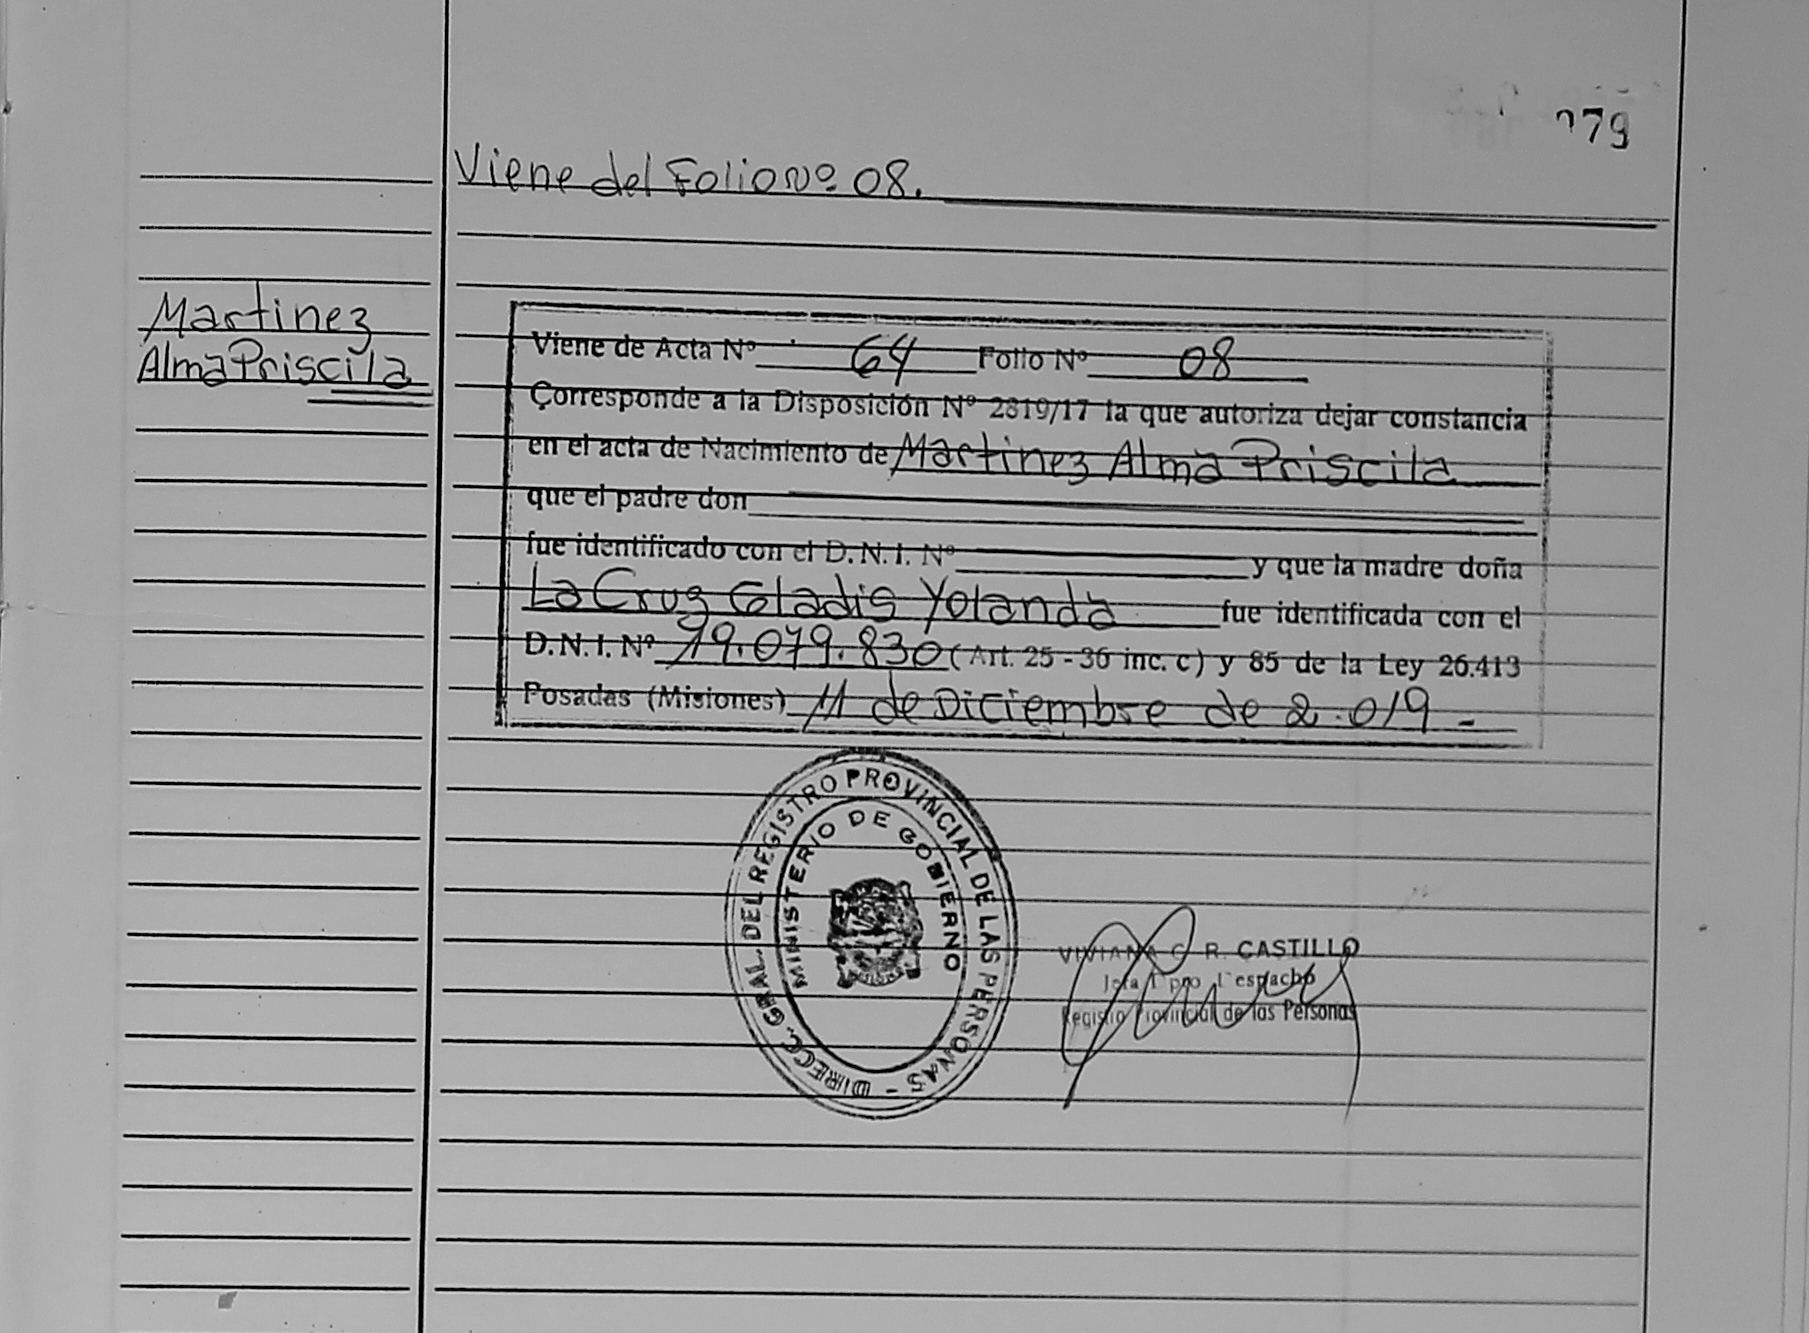 079
Viene del Folio Nº 08.
Martinez
Alma Priscila
Viene de Acta Nº 64 Folio Nº 08
Corresponde a la Disposición Nº 2819/17 la que autoriza dejar constancia
en el acta de Nacimiento de Martinez Alma Priscila
que el padre don
fue identificado con el D.N.I. Nº y que la madre doña
La Cruz Gladis Yolanda fue identificada con el
D.N.I. Nº 19.079.830 (Art. 25 - 36 inc. c) y 85 de la Ley 26.413
Posadas (Misiones) 11 de Diciembre de 2.019 -
DIRECC. GRAL. DEL REGISTRO PROVINCIAL DE LAS PERSONAS -
MINISTERIO DE GOBIERNO
VIVIANA C. R. CASTILLO
Despacho
Registro Provincial de las Personas